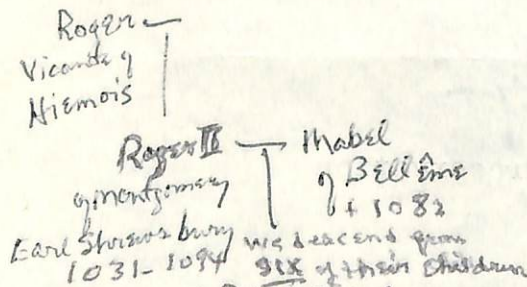 Roger
Vicomte of
Hiemois
Roger II
of Montgomery
Mabel
of Bellême
+ 1082
Earl Shrewsbury
1031-1094
we descend from
six of their children